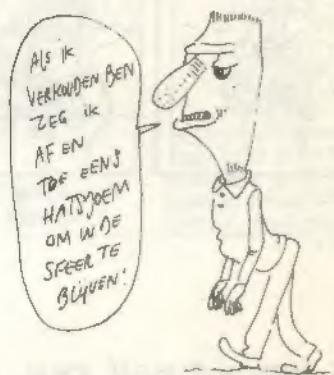 Als ik
VERKOUDEN BEN
ZEG ik
AF EN
TOE EENS
HATSJOEM
OM IN DE
SFEER TE
BLIJVEN!